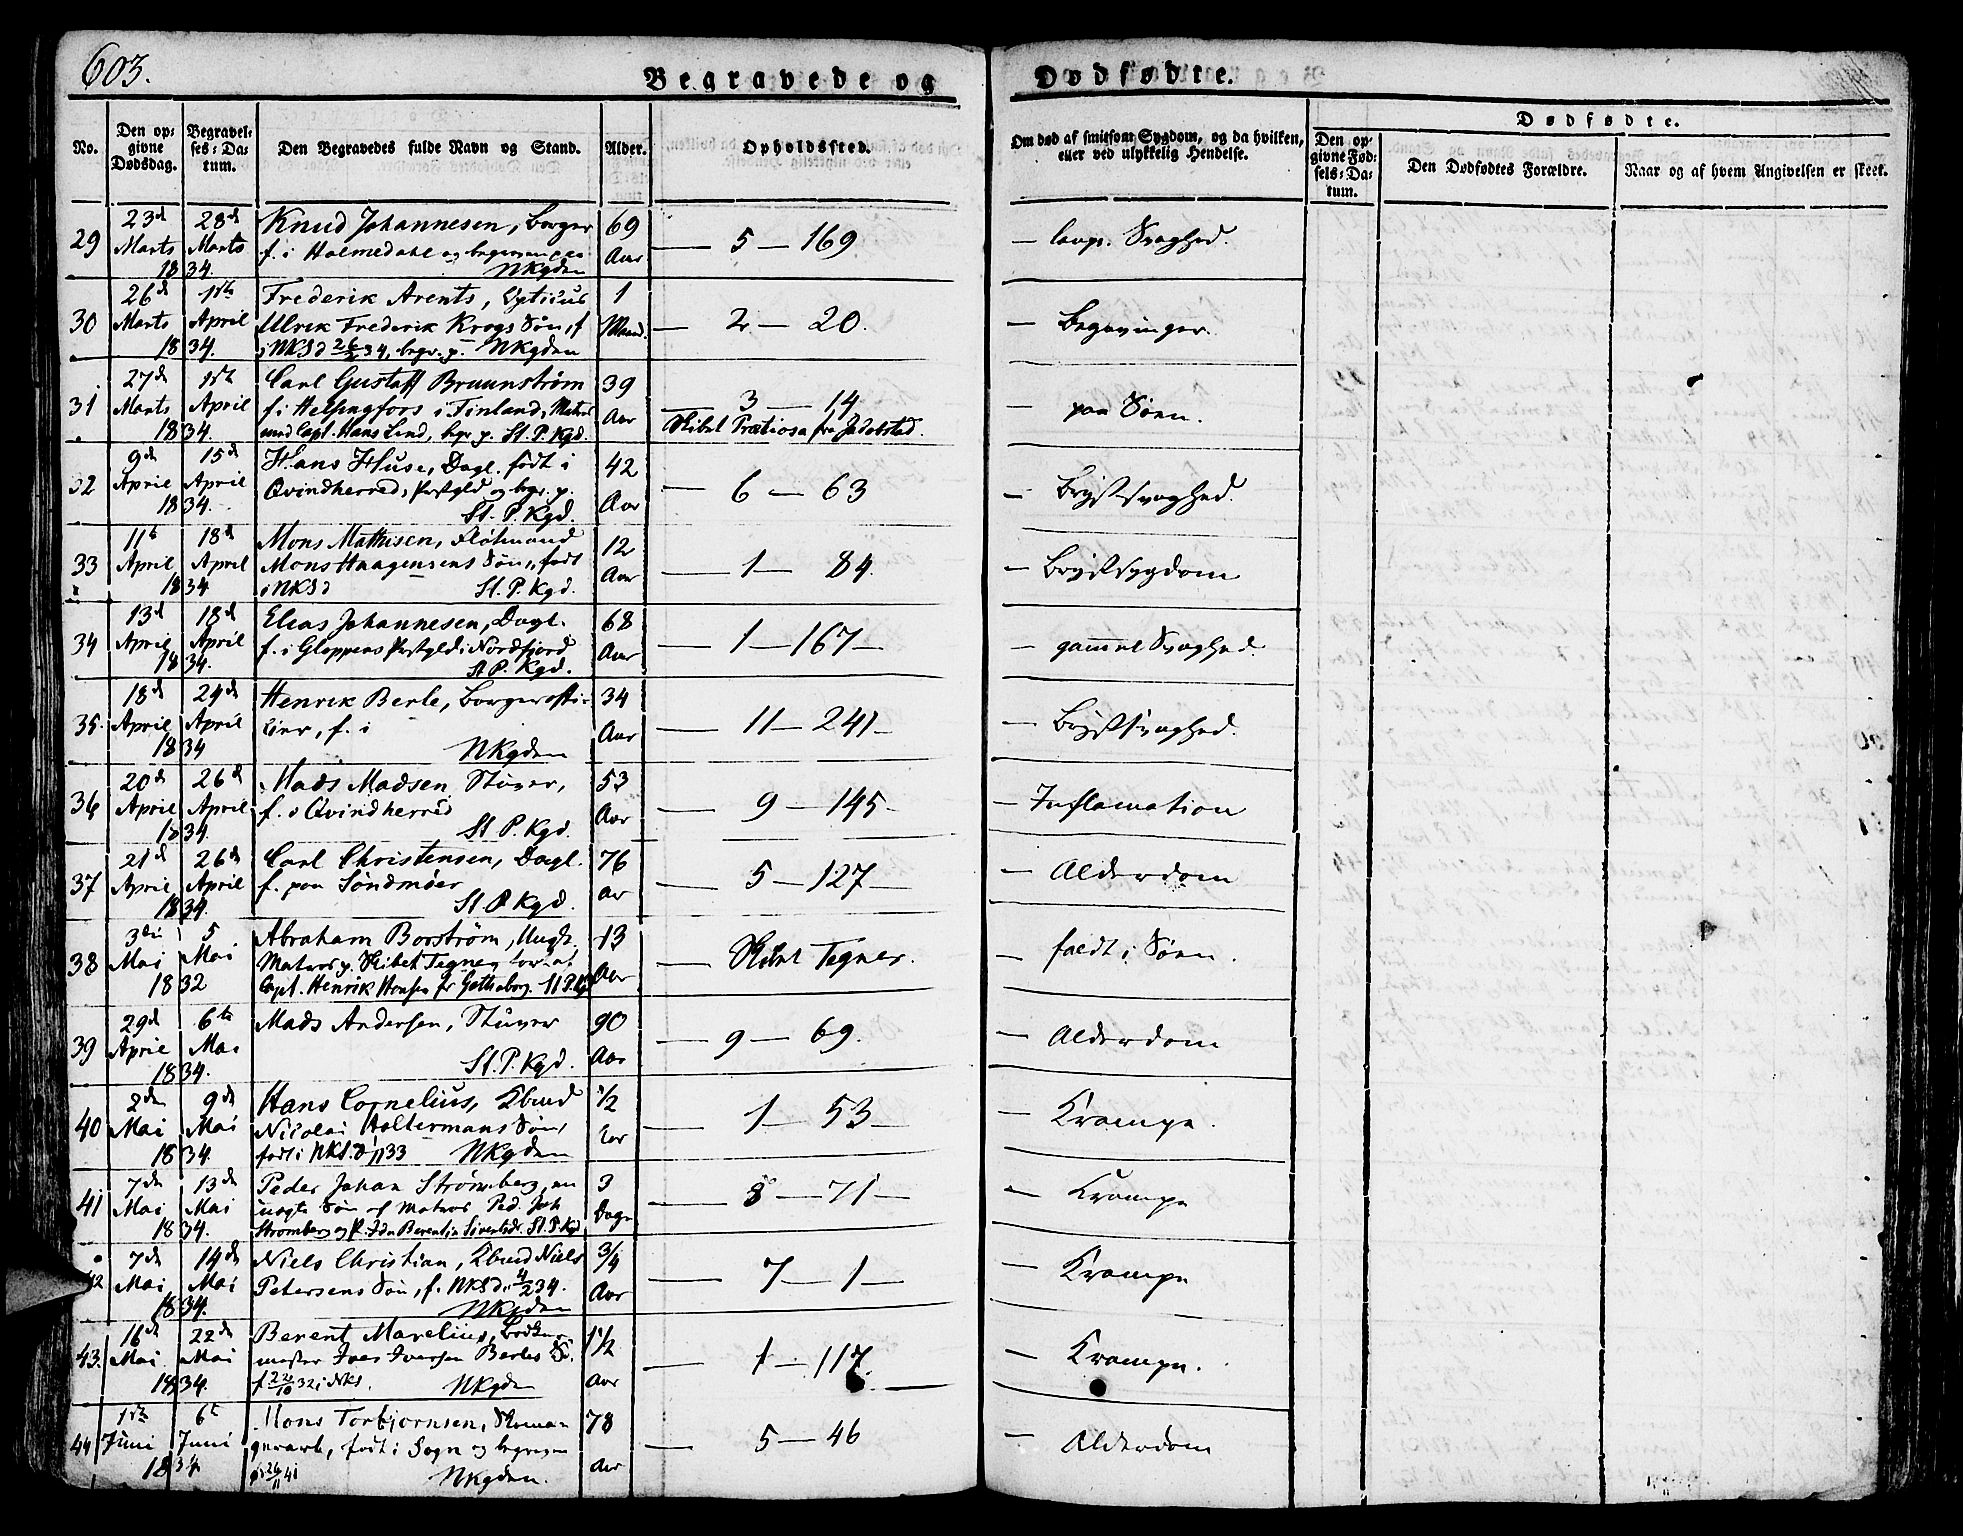 603.
Begravede og
Dødfødte.
No.
Den opgivne Dødsdag.
Begravelses-Datum.
Den Begravedes fulde Navn og Stand.
Alder.
Opholdssted.
Om død af smitsom Sygdom, og da hvilken, eller ved ulykkelig Hendelse.
Dødfødte.
Den opgivne Fødsels-Datum.
Den Dødfødtes Forældre.
Naar og af hvem Angivelsen er skeet.
29 23d Marts 1834. 28d Marts
Knud Johannesen, Borger
f. i Holmedahl og
NKgden
69 Aar
— 5 — 169
— Svaghed.
30 26d Marts 1834. 1ste April
Frederik Arents,
Ulrik Frederik Krogs Søn, f
i NKSd 26/2 34, begr. p. NKgden
1 Maaned.
— 2 — 20.
—
31 27d Marts 1834. 1ste April
Carl Gustaff Bruunstrøm
f. i Helsingfors i Finland, Matros
med Capt. Hans Lind, begr. p. St. P. Kgd.
39 Aar
— 3 — 14
Skibet Prætiosa fra Jacobstad.
— paa Søen.
32 9d April 1834. 15d April
Hans Huse, Dagl. født i
Qvindherreds Præstgld og begr. p.
St. P. Kgd.
42 Aar
— 6 — 63
— Brystsvaghed.
33 11te April 1834 18d April
Mons Mathisen, Flötmand
Mons Haagensens Søn, født
i NKSd St. P. Kgd.
12 Aar
— 1 — 84.
— Brystsygdom
34 13d April 1834. 18d April
Elias Johannesen, Dagl.
f. i Gloppens Præstgld i Nordfjord
St P. Kgd.
68 Aar
— 1 — 167 —
— gammel Svaghed.
35. 18d April 1834 24d April
Henrik Berle,
f. i
NKgden
34 Aar
— 11 — 241 —
— Brystsvaghed.
36 20d April 1834. 26d April
Mads Madsen Stuver,
f. i Qvindherred
St. P. Kgd.
53 Aar
— 9 — 145 —
— Inflamation
37 21d April 1834. 26d April
Carl Christensen, Dagl.
f. paa Söndmöer
St. P. Kgd.
76 Aar
— 5 — 127 —
— Alderdom
38 3die Mai 1832 5 Mai
Abraham Borström, Ungk.
Matros p. Skibet Tegner
Capt. Henrik Hansen fr Gothaborg. St P. Kgd
13 Aar
— Skibet Tegner.
— faldt i Søen.
39 29d April 1834. 6te Mai
Mads Andersen, Stuver
St. P. Kgd.
90 Aar
— 9 — 69.
— Alderdom
40 2den Mai 1834. 9de Mai
Hans Cornelius,
Nicolai Holtermans Søn,
født i NKSd NKgden
1/2 Aar
— 1 — 53 —
— Krampe.
41 7de Mai 1834. 13de Mai
Peder Johan Strømberg, en
uægte Søn af Matros Ped. Joh
Stromberg og P. Ida Berentin St. P. Kgd
3 Dage
— 8 — 71 —
— Krampe
42 7de Mai 1834. 14de Mai
Niels Christian, Niels
Petersens Søn, f. NKSd. 4/2 34.
NKgden
3/4 Aar
— 7 — 1 —
— Krampe
43. 16de Mai 1834. 22de Mai
Berent Marelius,
mester Iver Iversen Berles Sö.
f 22/10 32 i NKS. NKgden
1 1/2 Aar
— 1 — 117.
— Krampe.
44 1ste Juni 1834 6te Juni
Mons Torbjørnsen,
født i Sogn og
NKgden.
78 Aar
— 5 — 46
— Alderdom